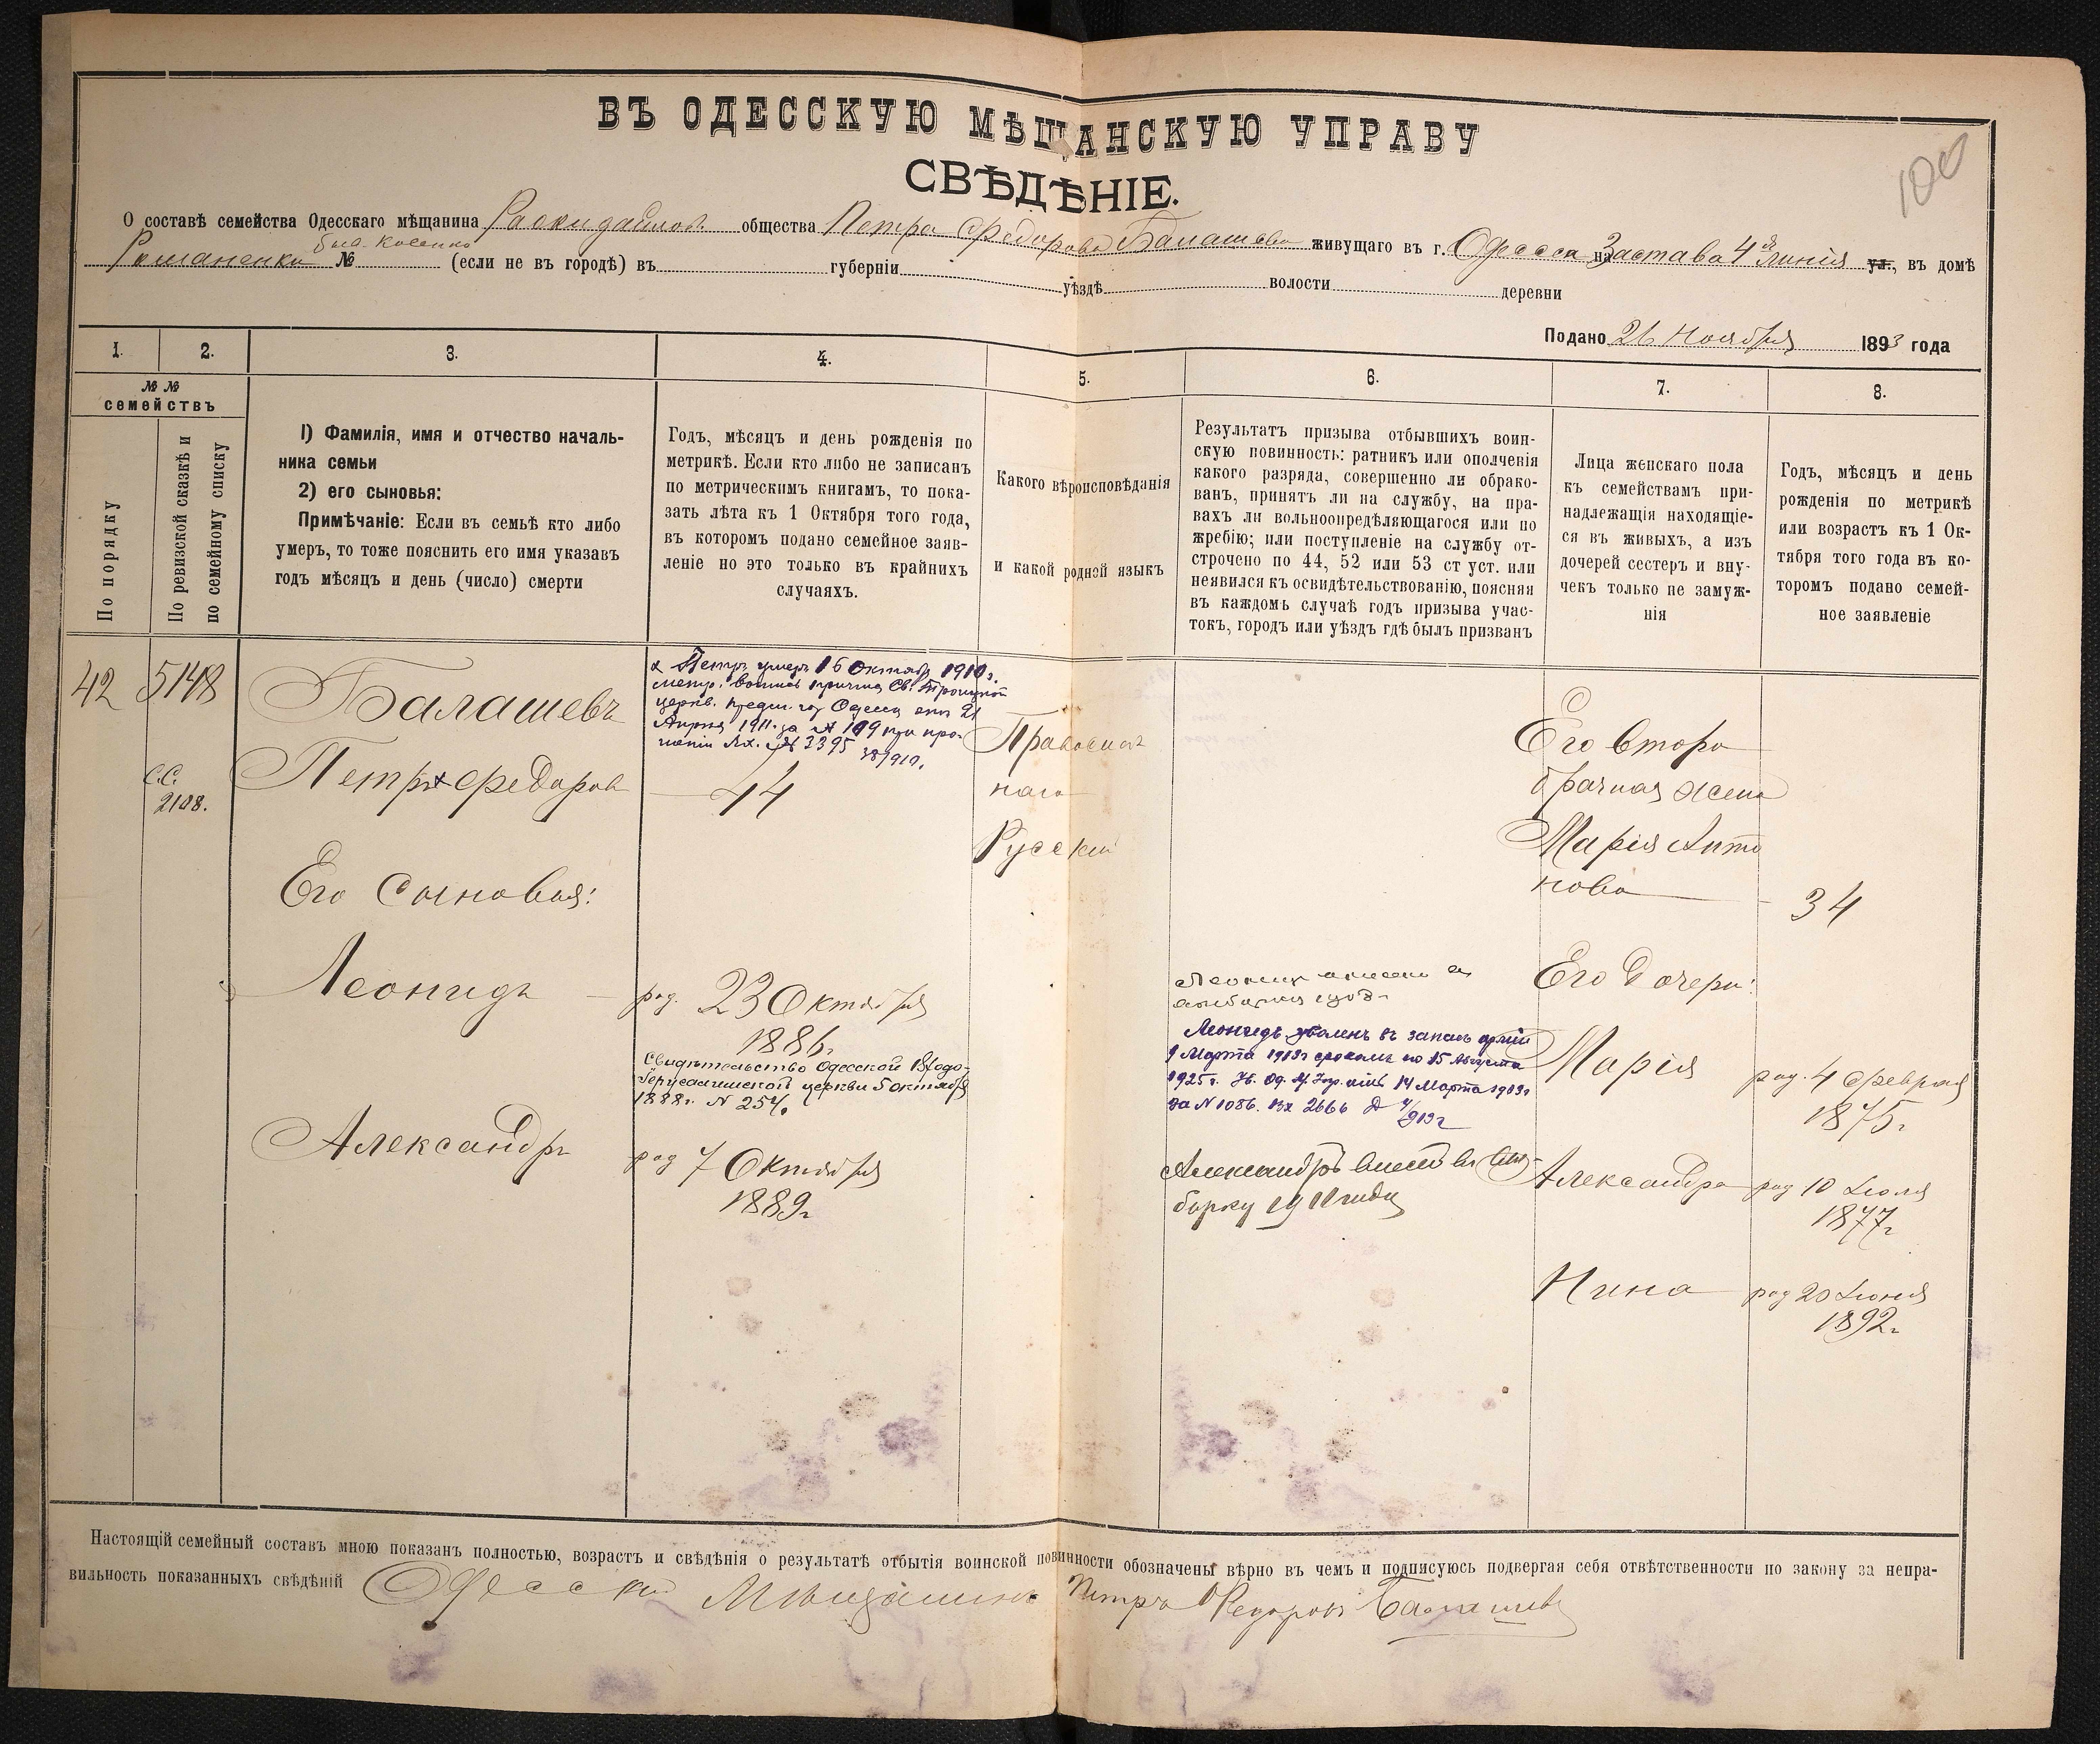 100
ВЪ ОДЕССКУЮ МѢЩАНСКУЮ УПРАВУ
СВѢДѢНІЕ.
О составѣ семейства Одесскаго мѣщанина общества Петра Федорова Балашева живущаго въ г. Одесса на Застава 4 линія ул., въ домѣ
Романенки № (если не въ городѣ) въ губерніи уѣздѣ волости деревни
Подано 26 Ноября 1893 года
1. 2. 3. 4. 5. 6. 7. 8.
№ №
семействъ
По порядку
По ревизской сказкѣ и
по семейному списку
1) Фамилія, имя и отчество началь-
ника семьи
2) его сыновья:
Примѣчаніе: Если въ семьѣ кто либо
умеръ, то тоже пояснить его имя указавъ
годъ мѣсяцъ и день (число) смерти
Годъ, мѣсяцъ и день рожденія по
метрикѣ. Если кто либо не записанъ
по метрическимъ книгамъ, то пока-
зать лѣта къ 1 Октября того года,
въ которомъ подано семейное заяв-
леніе но это только въ крайнихъ
случаяхъ.
Какого вѣроисповѣданія
и какой родной языкъ
Результатъ призыва отбывшихъ воин-
скую повинность: ратникъ или ополченія
какого разряда, совершенно ли обрако-
ванъ, принятъ ли на службу, на пра-
вахъ ли вольноопредѣляющагося или по
жребію; или поступленіе на службу от-
строчено по 44, 52 или 53 ст уст. или
неявился къ освидѣтельствованію, поясняя
въ каждомъ случаѣ годъ призыва учас-
токъ, городъ или уѣздъ гдѣ былъ призванъ
Лица женскаго пола
къ семействамъ при-
надлежащія находящіе-
ся въ живыхъ, а изъ
дочерей сестеръ и вну-
чекъ только не замуж-
нія
Годъ, мѣсяцъ и день
рожденія по метрикѣ
или возрастъ къ 1 Ок-
тября того года въ ко-
торомъ подано семей-
ное заявленіе
42 5148
С.С.
2108.
Балашевъ
Петръ х Федоров
Его Сыновья:
Леонидъ
Александръ
х Петръ умеръ 16 Октябр 1910 г.
метр. выпись причта Св. Троицкой
церкв. предм. гор Одессы отъ 21
Апрѣля 1911 за № 109 при про-
шеніи Вх. № 3395
44
род. 23 Октября
1886 г.
Свидѣтельство Одесской
Іерусалимской церкви 5 октября
1888 г. N 254.
род 7 Октября
1889 г
Православ
наго
Русскій
Леонидъ уволенъ въ запасъ арміи
9 Марта 1913 г срокомъ по 15 Августа
1925 г. 14 Марта 1913 г
за N 1086. Вх 2666
Александръ внесенъ въ вы-
борку 1911 года
Его второ
брачная жена
Марія Анто
нова
34
Его Дочери:
Марія
род. 4 Февраля
1875 г
Александра
род 10 Іюля
1877 г
Нина
род 20 Іюня
1892 г
Настоящій семейный составъ мною показанъ полностью, возрастъ и свѣдѣнія о результатѣ отбытія воинской повинности обозначены вѣрно въ чемъ и подписуюсь подвергая себя отвѣтственности по закону за непра-
вильность показанныхъ свѣдѣній Одесскій Мѣщанинъ Петръ Федоровъ Балашевъ